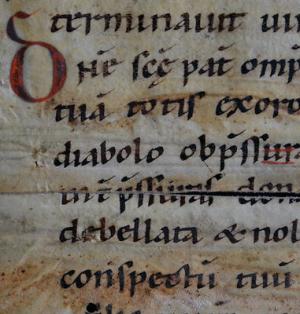 terminauit ui
DNE sc̄e pat̄ omp
tuā totis exoro
diabolo obp̄ssu
don
debellata & nol
conspectu tuū